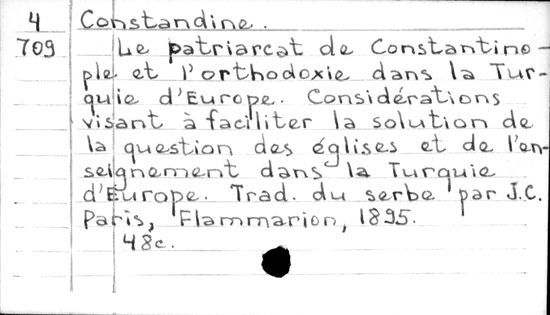 4 Constandine.
709 Le patriarcat de Constantino-
ple et l'orthodoxie dans la Tur-
quie d'Europe. Considérations
visant à faciliter la solution de
la question des églises et de l'en-
seignement dans la Turquie
d'Europe. Trad. du serbe par J.C.
Paris, Flammarion, 1895.
48c.